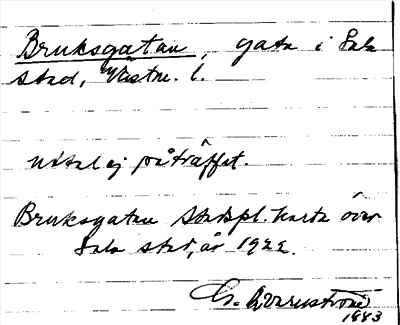 Bruksgatan, gata i Sala
stad, Västm. l.
uttal ej påträffat.
Bruksgatan Stadspl. karta över
Sala stad, år 1922.
G. Warnström
1983